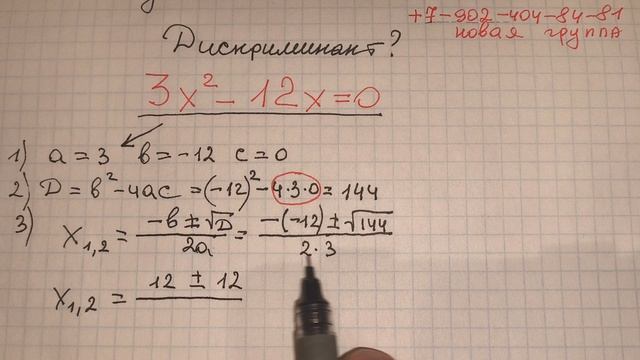 +7-902-404-84-81
новая группа
Дискриминант?
3x² - 12x = 0
1) a = 3 b = -12 c = 0
2) D = b² - 4ac = (-12)² - 4·3·0 = 144
3) x₁,₂ = (-b ± √D) / 2a = (-(-12) ± √144) / 2·3
x₁,₂ = 12 ± 12